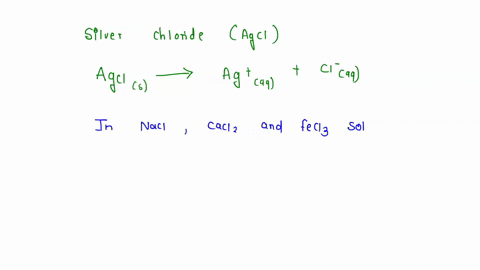 Silver chloride (AgCl)
AgCl (s) ⟶ Ag⁺ (aq) + Cl⁻ (aq)
In NaCl , CaCl₂ and FeCl₃ sol